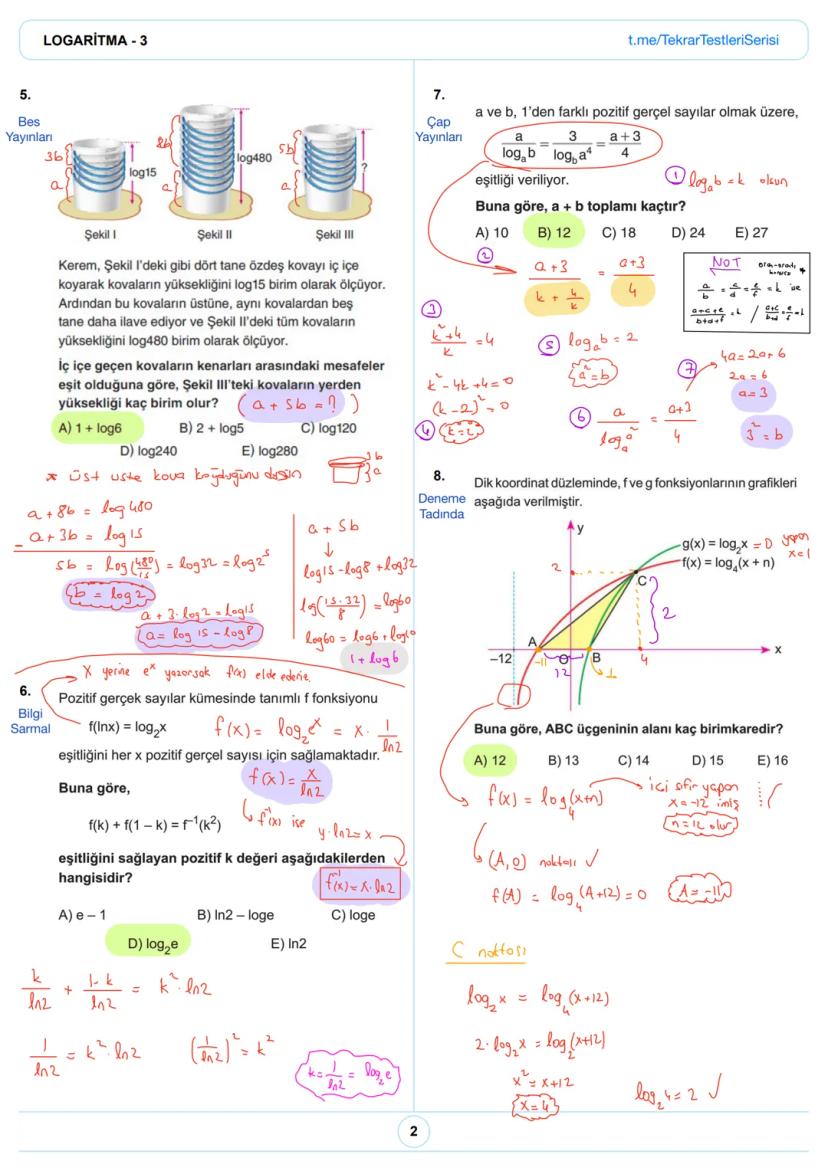 LOGARİTMA - 3
t.me/TekrarTestleriSerisi
5.
Bes
Yayınları
3b
a
log15
8b
a
log480
5b
a
?
Şekil I
Şekil II
Şekil III
Kerem, Şekil I'deki gibi dört tane özdeş kovayı iç içe
koyarak kovaların yüksekliğini log15 birim olarak ölçüyor.
Ardından bu kovaların üstüne, aynı kovalardan beş
tane daha ilave ediyor ve Şekil II'deki tüm kovaların
yüksekliğini log480 birim olarak ölçüyor.
İç içe geçen kovaların kenarları arasındaki mesafeler
eşit olduğuna göre, Şekil III'teki kovaların yerden
yüksekliği kaç birim olur? (a + 5b = ?)
A) 1 + log6 B) 2 + log5 C) log120
D) log240 E) log280
* üst üste kova koyduğunu düşün
3b
a
a + 8b = log480
- a + 3b = log15
5b = log(480/15) = log32 = log2⁵
b = log2
a + 3.log2 = log15
a = log15 - log8
a + 5b
↓
log15 - log8 + log32
log(15.32/8) = log60
log60 = log6 + log10
1 + log6
x yerine eˣ yazarsak f(x) elde ederiz.
6.
Bilgi
Sarmal
Pozitif gerçek sayılar kümesinde tanımlı f fonksiyonu
f(lnx) = log₂x
f(x) = log₂eˣ = x . 1/ln2
eşitliğini her x pozitif gerçel sayısı için sağlamaktadır.
f(x) = x/ln2
Buna göre,
f⁻¹(x) ise
y.ln2 = x
f(k) + f(1 – k) = f⁻¹(k²)
eşitliğini sağlayan pozitif k değeri aşağıdakilerden
hangisidir?
f⁻¹(x) = x.ln2
A) e – 1 B) ln2 – loge C) loge
D) log₂e E) ln2
k/ln2 + 1-k/ln2 = k².ln2
1/ln2 = k².ln2 (1/ln2)² = k²
k = 1/ln2 = log₂e
7.
Çap
Yayınları
a ve b, 1'den farklı pozitif gerçel sayılar olmak üzere,
a/logₐb = 3/log_b a⁴ = a + 3/4
eşitliği veriliyor.
1 logₐb = k olsun
Buna göre, a + b toplamı kaçtır?
A) 10 B) 12 C) 18 D) 24 E) 27
2
a+3/k + 4/k = a+3/4
NOT
a/b = c/d = e/f = k ise
a+c+e/b+d+f = k / a+c/b+d = e/f = k
3
k²+4/k = 4
k² - 4k + 4 = 0
(k - 2)² = 0
4 k = 2
5 logₐb = 2
a² = b
6 a/logₐa² = a+3/4
7
4a = 2a + 6
2a = 6
a = 3
3² = b
8.
Deneme
Tadında
Dik koordinat düzleminde, f ve g fonksiyonlarının grafikleri
aşağıda verilmiştir.
y
g(x) = log₂x = 0 yapan
x = 1
f(x) = log₄(x + n)
2
C
2
A
–12
-11
O
B
1
4
x
12
Buna göre, ABC üçgeninin alanı kaç birimkaredir?
A) 12 B) 13 C) 14 D) 15 E) 16
f(x) = log₄(x+n)
içi sıfır yapan
x = -12 imiş
n = 12 olur
(A,0) noktası ✓
f(A) = log₄(A+12) = 0
A = -11
C noktası
log₂x = log₄(x+12)
2.log₂x = log₂(x+12)
x² = x+12
x = 4
log₂4 = 2 ✓
2